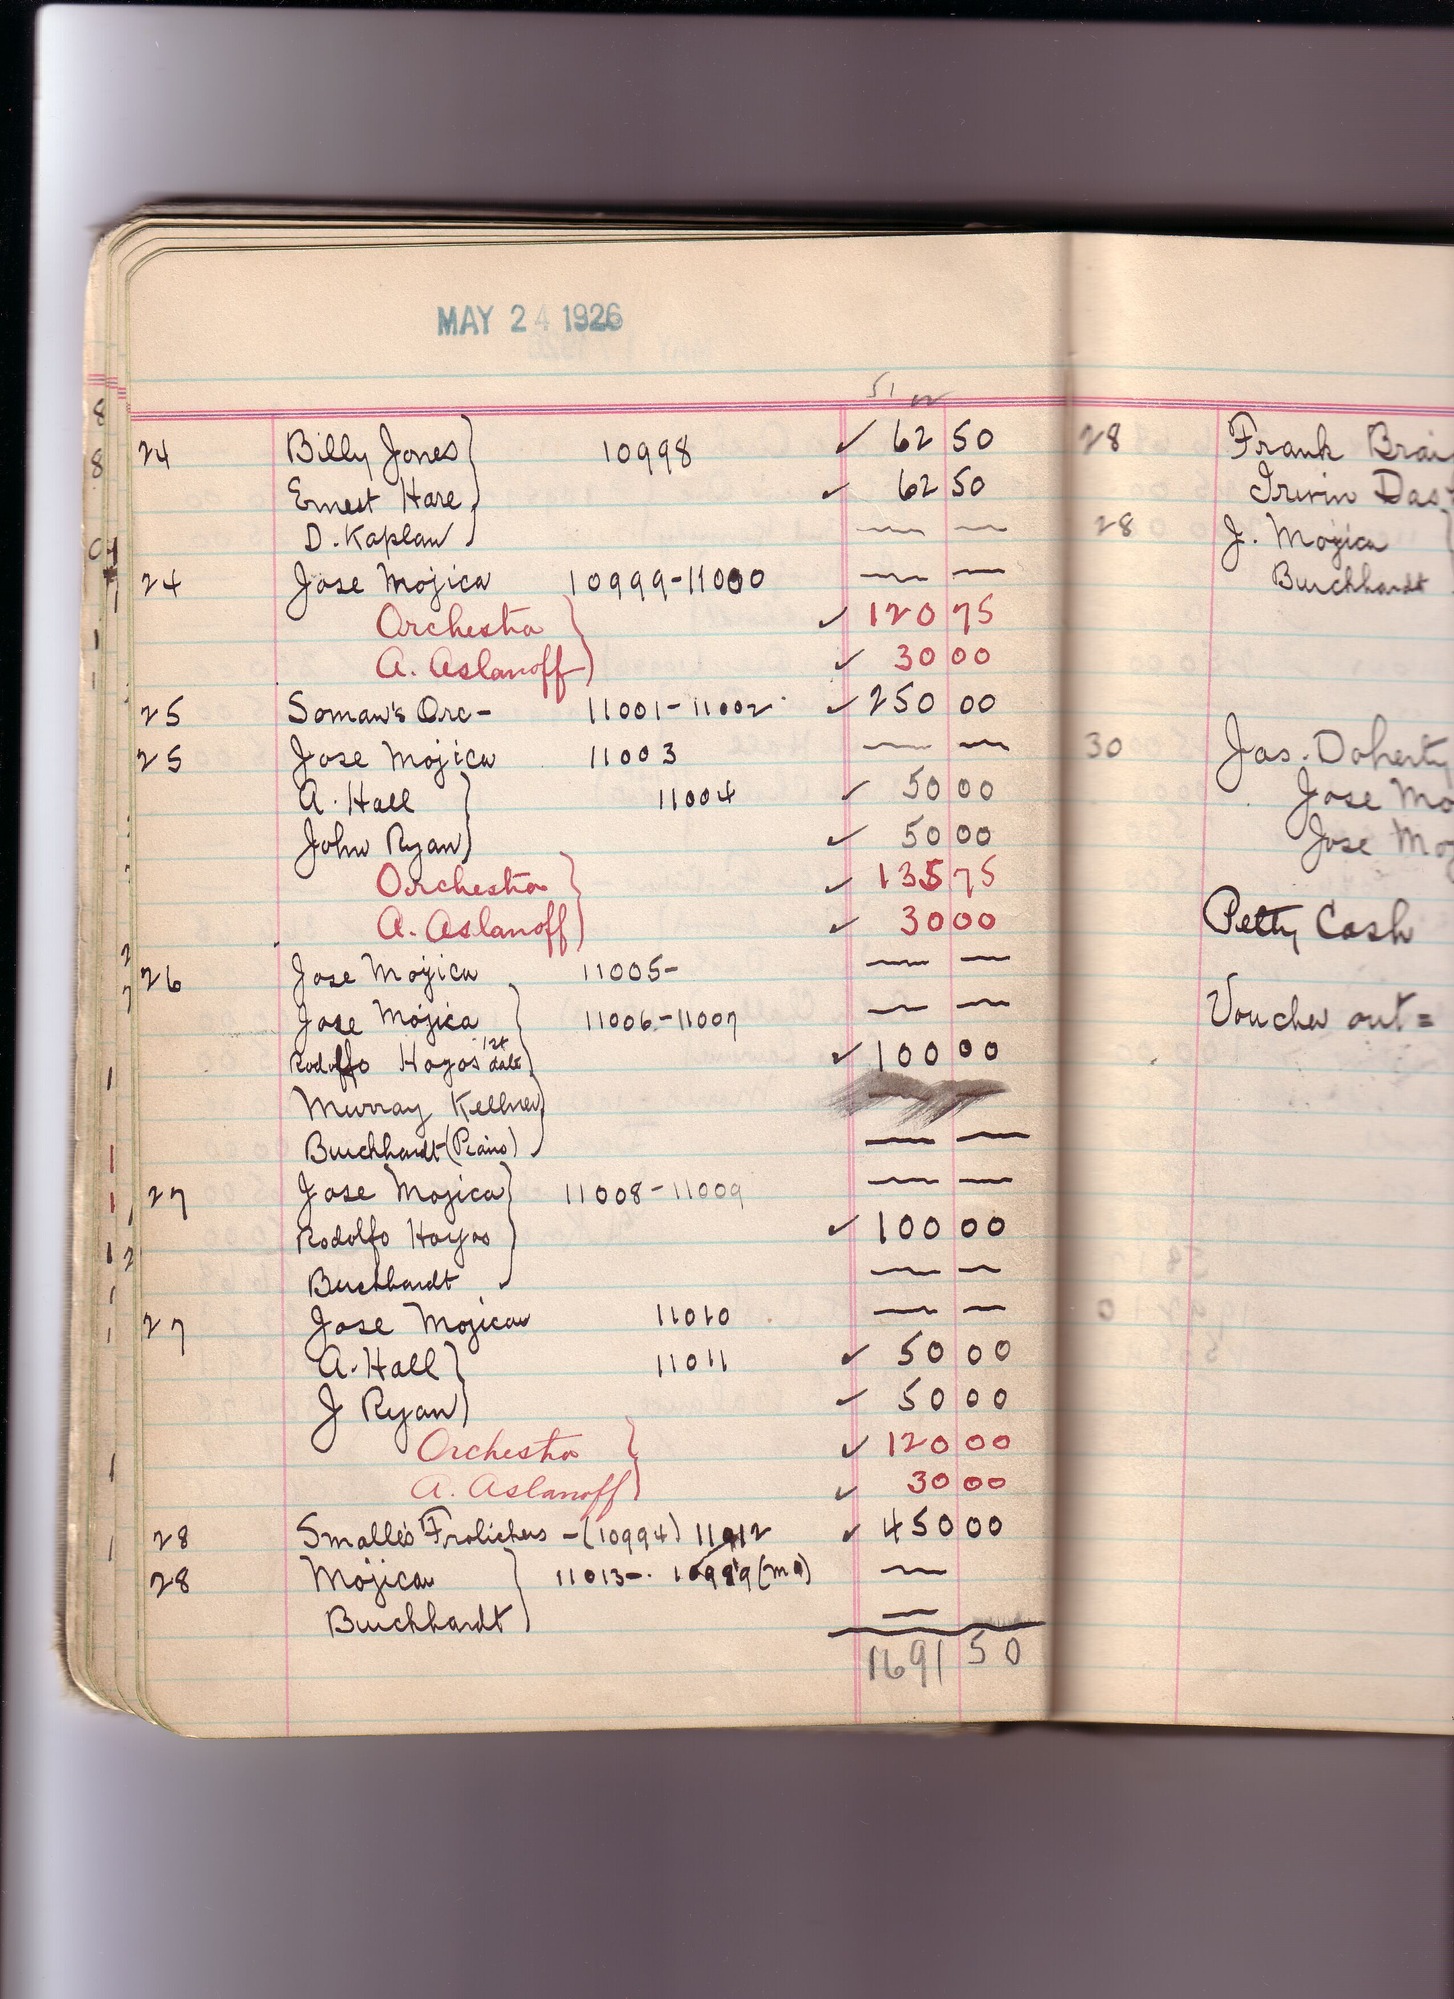 MAY 24 1926
51
24 Billy Jones 10998 ✓ 62 50
Ernest Hare ✓ 62 50
D. Kaplan — —
24 Jose Mojica 10999-11000 — —
Orchestra ✓ 120 75
A. Aslanoff ✓ 30 00
25 Soman's Orc- 11001-11002 ✓ 250 00
25 Jose Mojica 11003 — —
A. Hall 11004 ✓ 50 00
John Ryan ✓ 50 00
Orchestra ✓ 135 75
A. Aslanoff ✓ 30 00
26 Jose Mojica 11005- — —
Jose Mojica 11006-11007 — —
Rodolfo Hoyos 1st date ✓ 100 00
Murray Kellner —
Burchhardt (Piano) — —
27 Jose Mojica 11008-11009 — —
Rodolfo Hoyos ✓ 100 00
Burchhardt — —
27 Jose Mojica 11010 — —
A. Hall 11011 ✓ 50 00
J Ryan ✓ 50 00
Orchestra ✓ 120 00
A. Aslanoff ✓ 30 00
28 Smalle's Frolickers - (10994) 11012 ✓ 450 00
28 Mojica 11013-. —
Burchhardt —
1691 50
28 Frank Brai
Irwin Das
28 J. Mojica
Burchhardt
30 Jas. Doherty
Jose Mo
Jose Moj
Petty Cash
Voucher out =